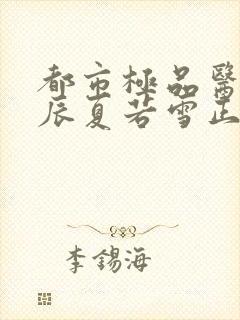 都市極品醫
辰夏若雪正
李錫海